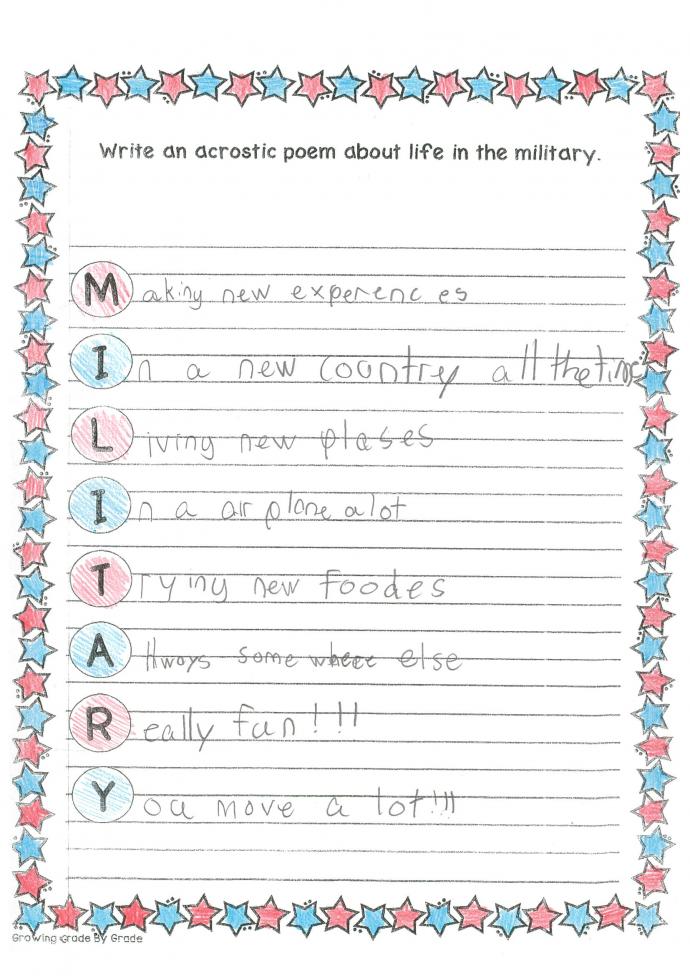 Write an acrostic poem about life in the military.
Making new experences
In a new country all the time
Living new plases
In a air plane alot
Trying new foodes
Allways some where else
Really fun!!!
You move a lot!!!
Growing Grade By Grade